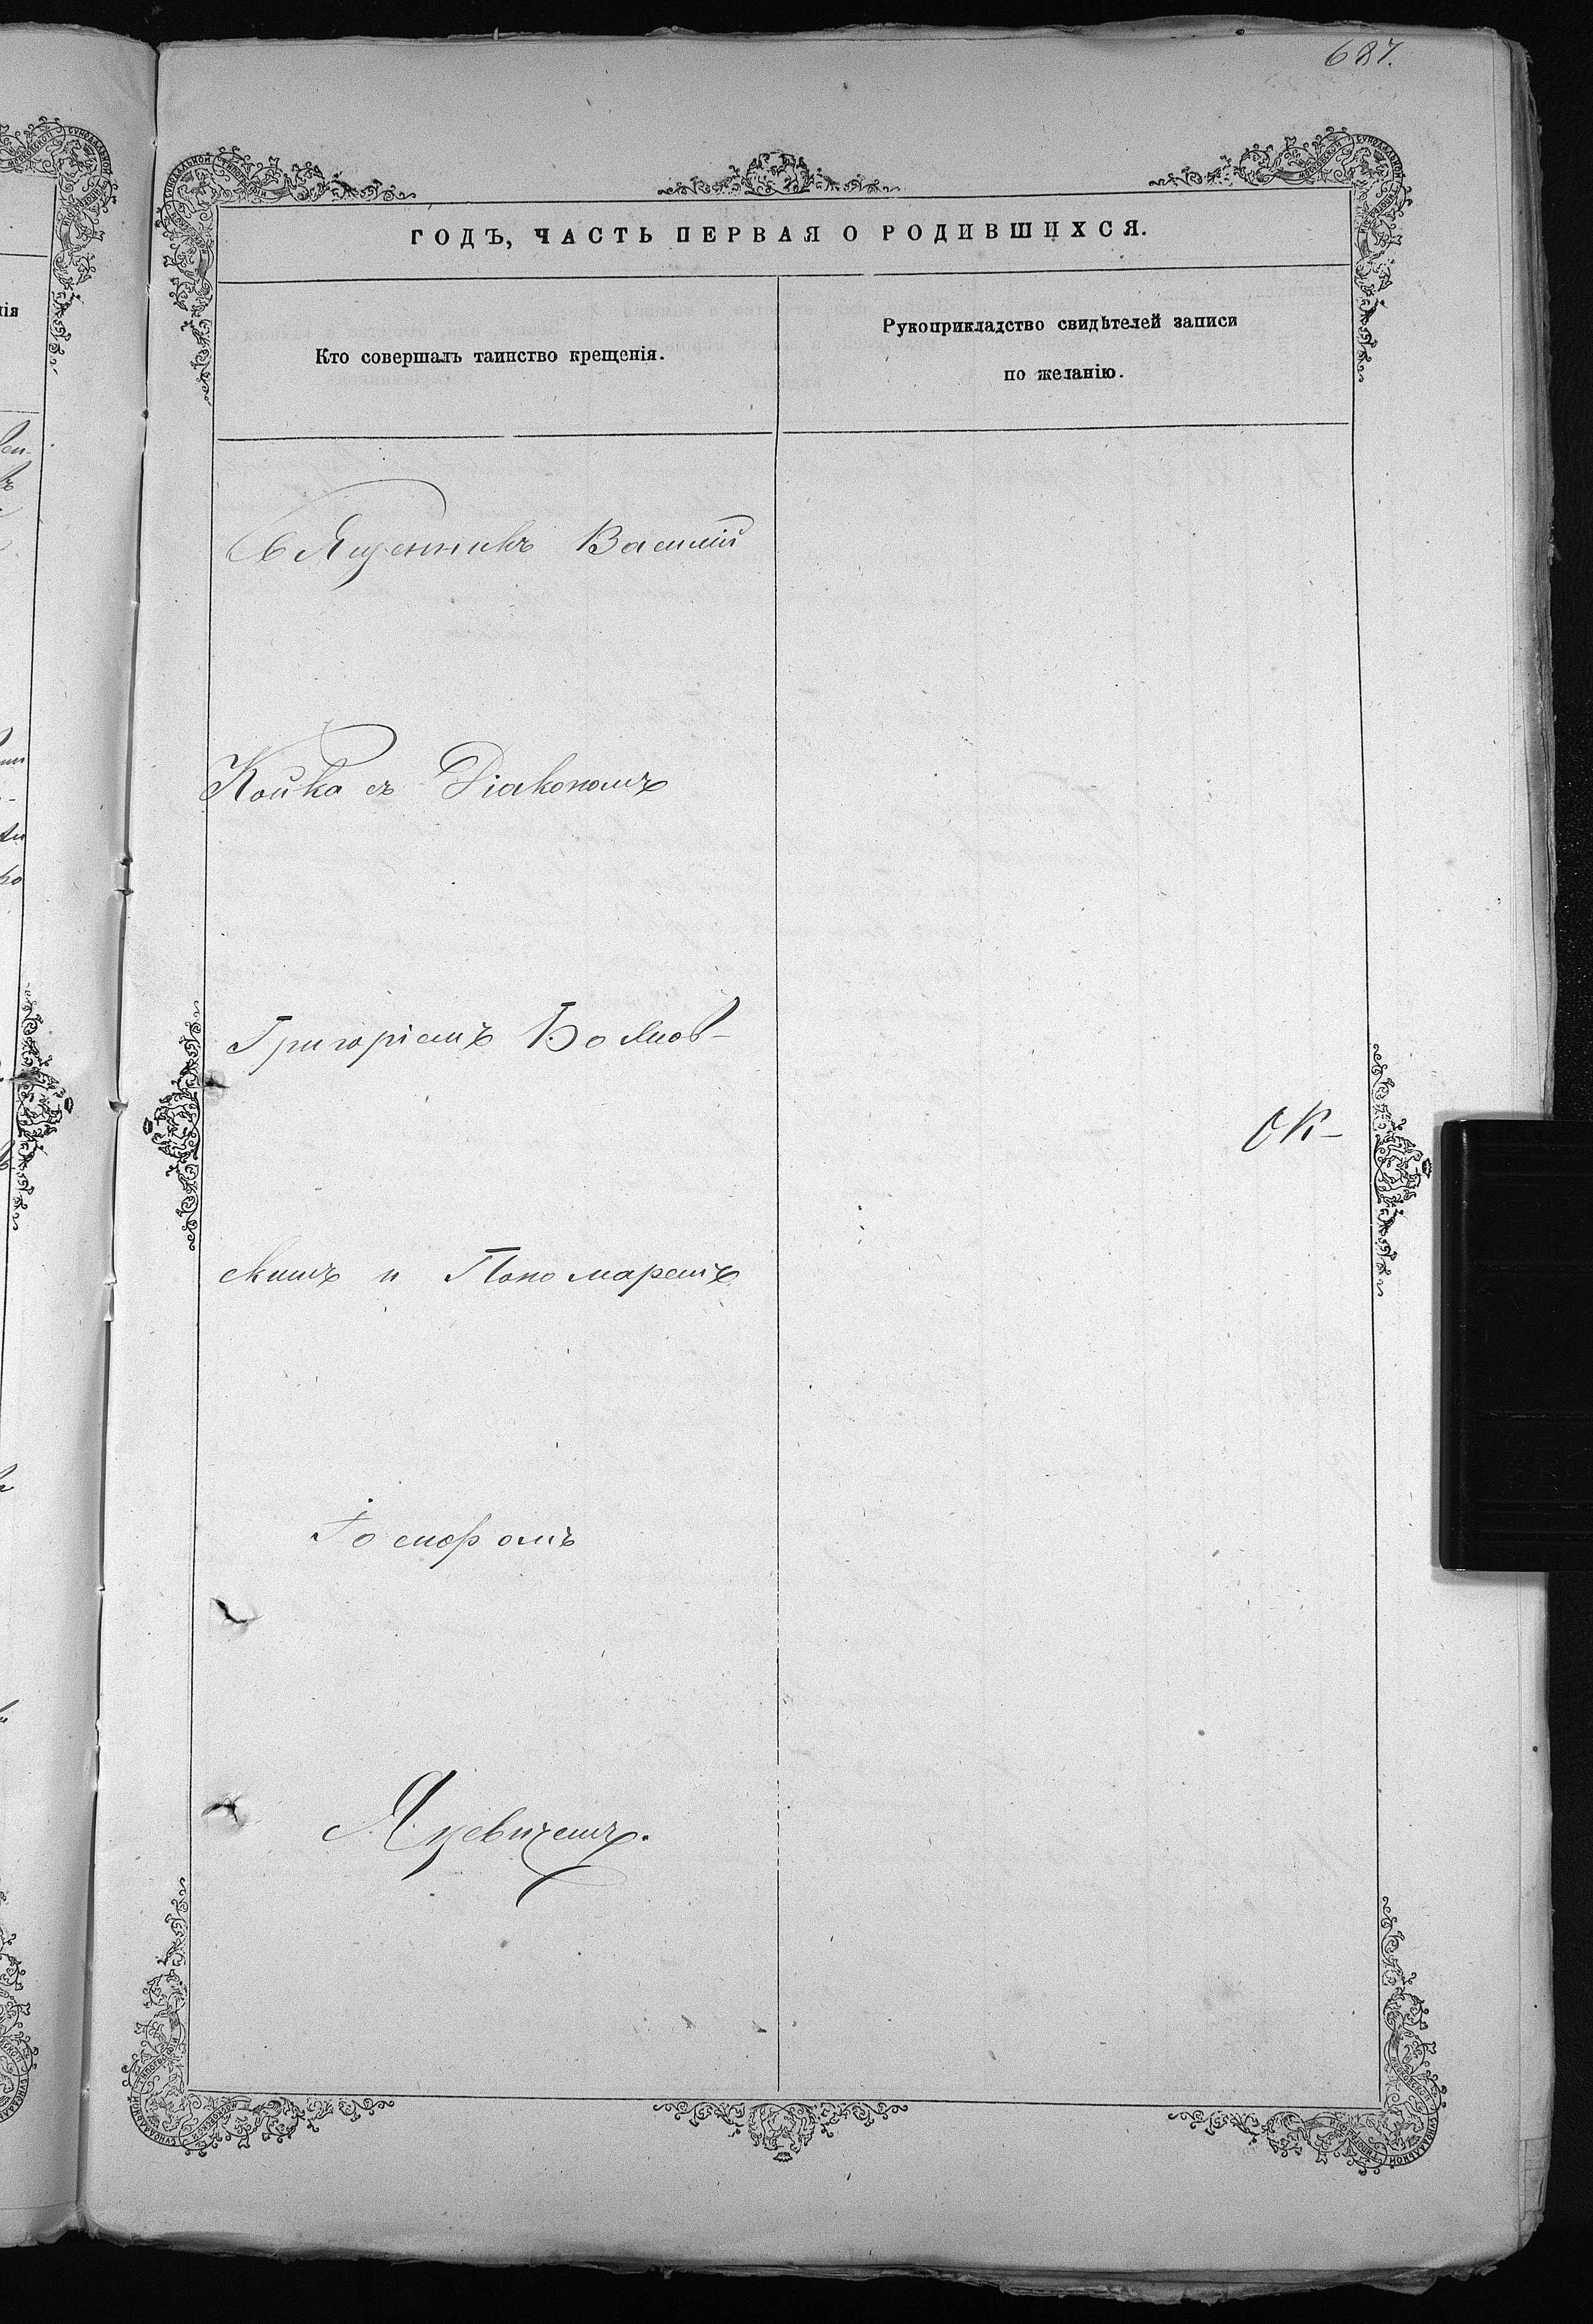 687.
ГОДЪ, ЧАСТЬ ПЕРВАЯ О РОДИВШИХСЯ.
Кто совершалъ таинство крещенія.
Рукоприкладство свидѣтелей записи
по желанію.
Священникъ Василій
Койко съ Діакономъ
Григоріемъ Боянов-
скимъ и Пономаремъ
Іосифомъ
Яцевичемъ.